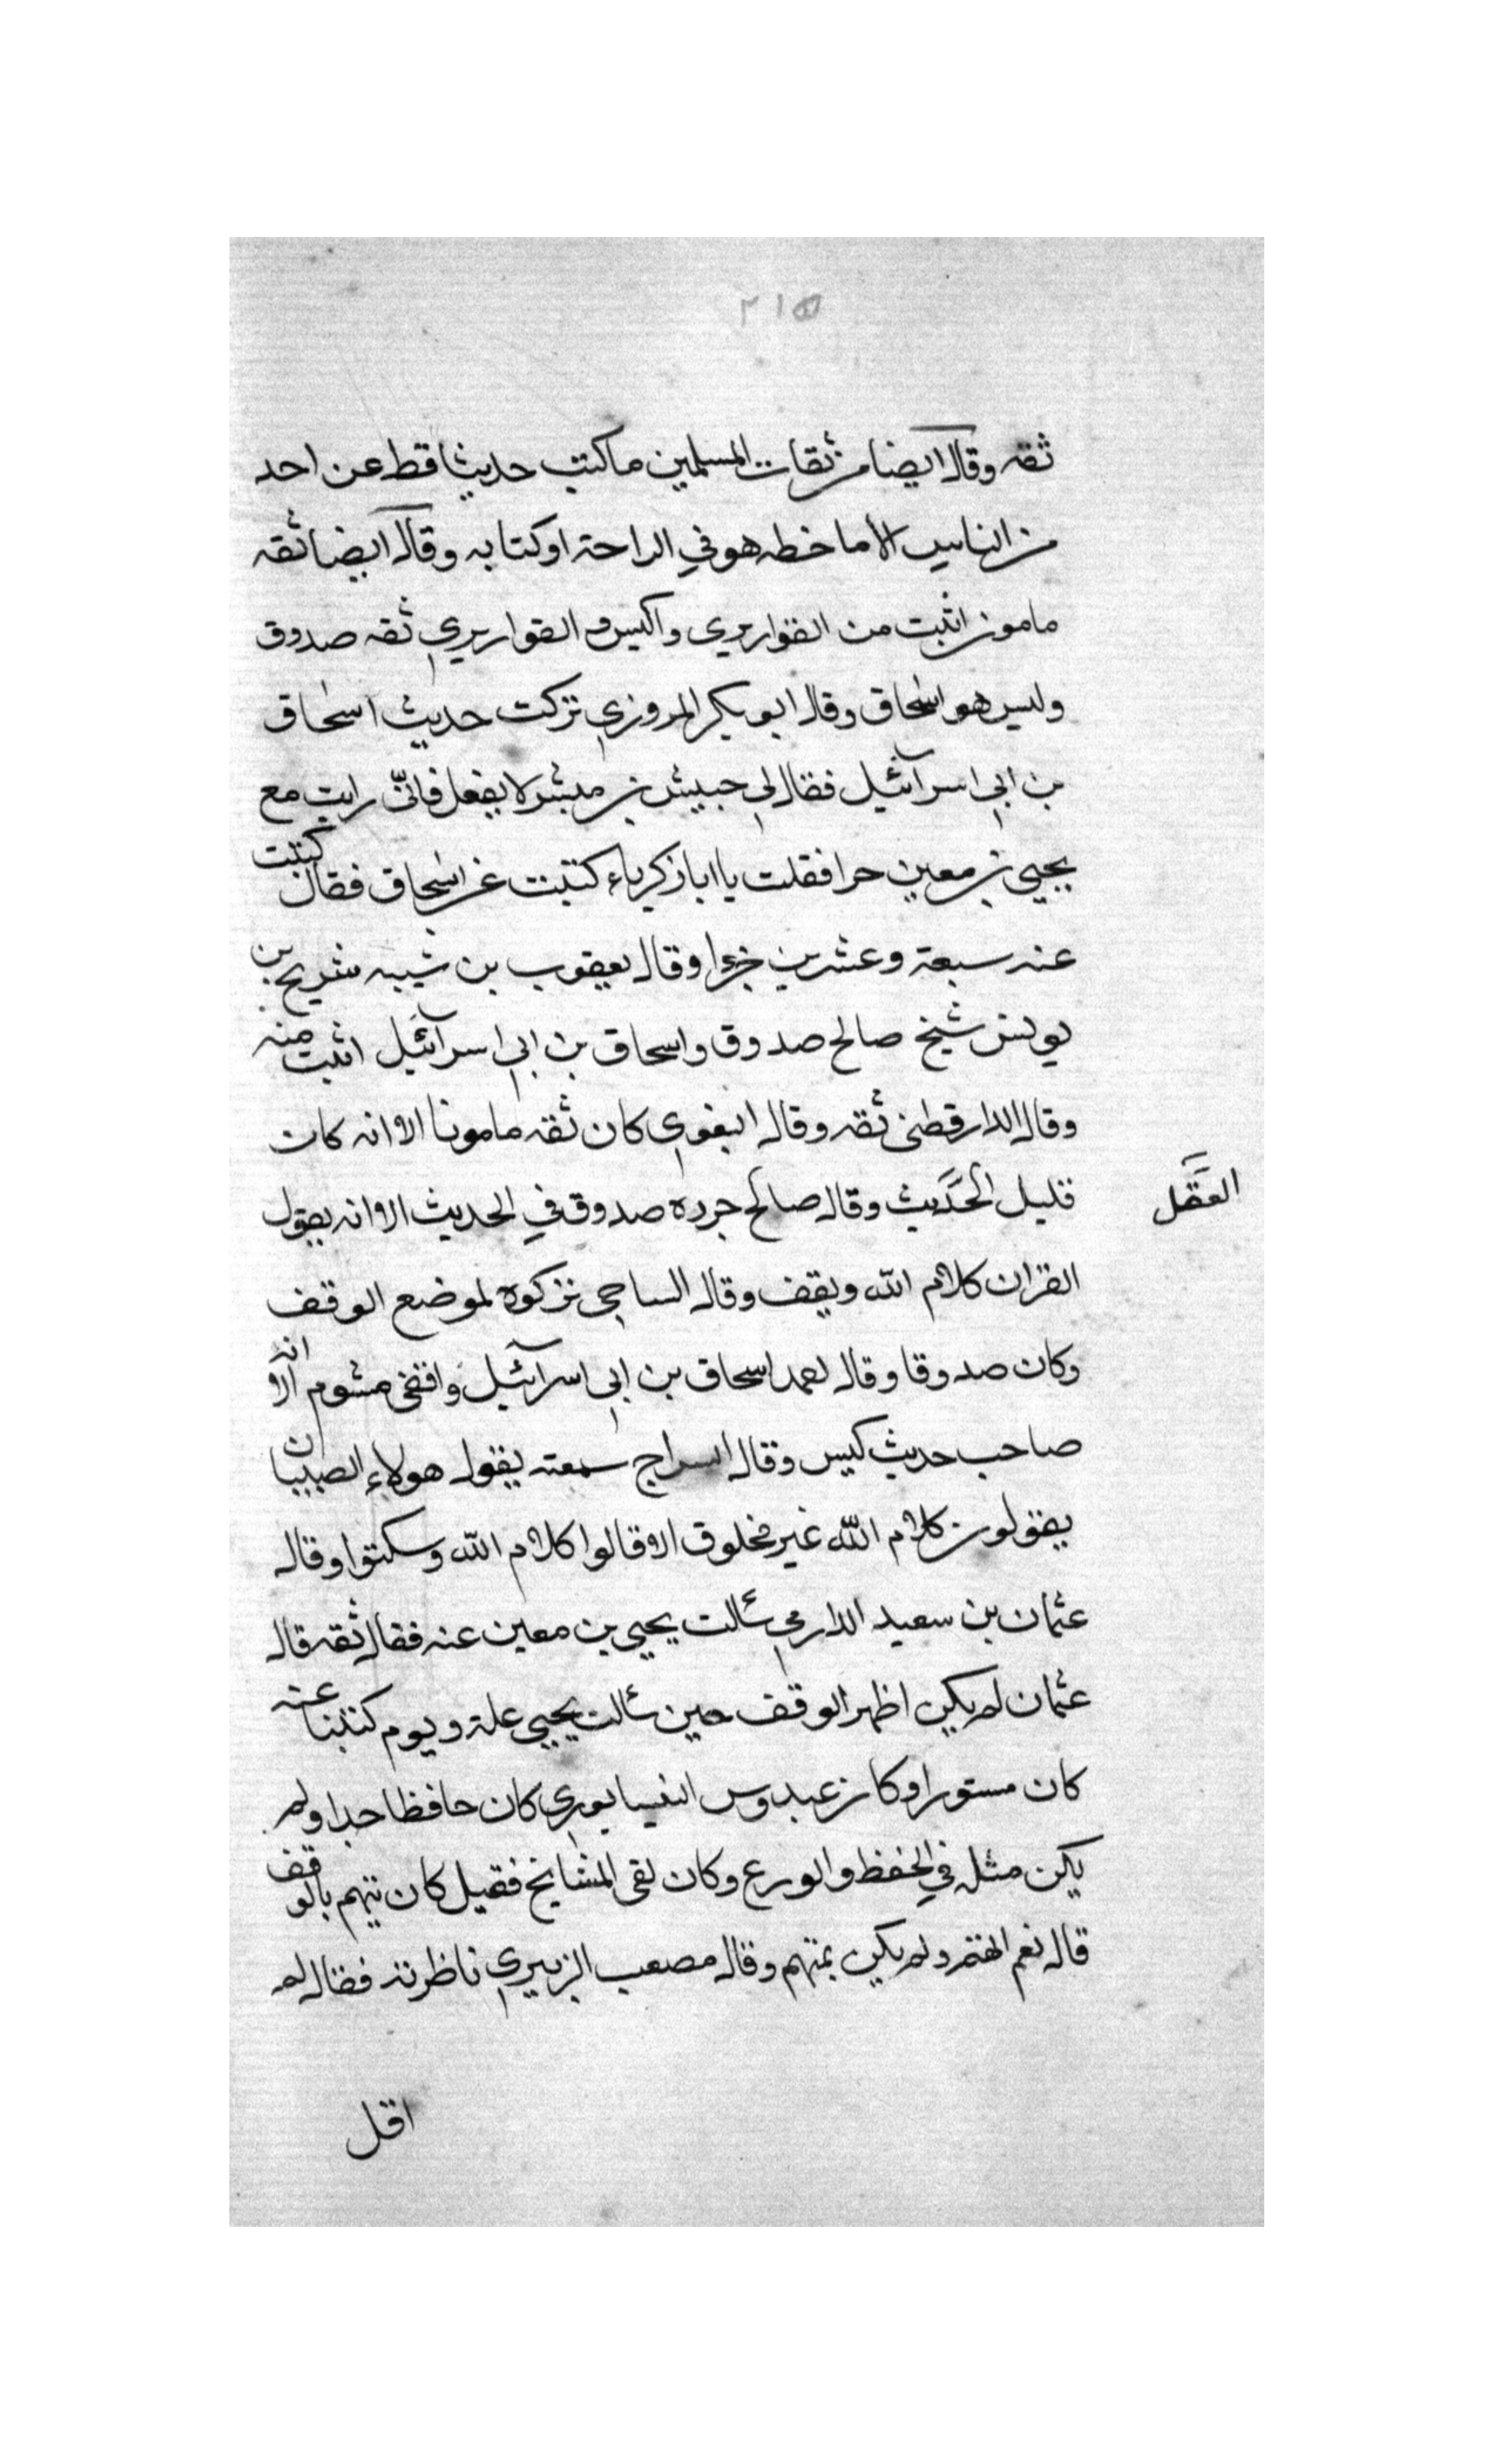 ٢١٥
ثقه وقال ايضا من ثقات المسلمين ما كتب حديثا قط عن احد
من الناس الا ما خطه هو في الراحة او كتابه وقال ايضا ثقه
مامون اثبت من القواريري واكيس و القواريري ثقه صدوق
وليس هو اسحاق وقال ابو بكر المروزي تركت حديث اسحاق
بن ابي اسرآئيل فقال لي حبيش بن مبشر لا يفعل فانّي رايت مع
يحيي بن معين حرا فقلت يا ابا زكرياء كتبت عن اسحاق فقال كتبت
عنه سبعة وعشرين جزءا وقال يعقوب بن شيبه شريح بن
يونس شيخ صالح صدوق واسحاق بن ابي اسرآئيل اثبت منه
وقال الدارقطني ثقه وقال البغوي كان ثقه مامونا الا انه كان
قليل الحديث وقال صالح جرده صدوق في الحديث الا انه يقول
العقل
القران كلام الله ويقف وقال الساجي تركوه لموضع الوقف
وكان صدوقا وقال احمد اسحاق بن ابي اسرآئيل واقفي مشوم الا انه
صاحب حديث كيس وقال السراج سمعته يقول هولاء الصبيان
يقولون كلام الله غير مخلوق الا قالوا كلام الله وسكتوا وقال
عثمان بن سعيد الدارمي سالت يحيي بن معين عنه فقال ثقه قال
عثمان لم يكن اظهر الوقف حين سالت يحيي عنه ويوم كتبنا عنه
كان مستورا وكان عبدوس النيسابوري كان حافظا جدا ولم
يكن مثله في الحفظ والورع وكان لقى المشايخ فقيل كان يتهم بالوقف
قال نعم اتهم ولم يكن بمتهم وقال مصعب الزبيري ناظرته فقال لم
اقل